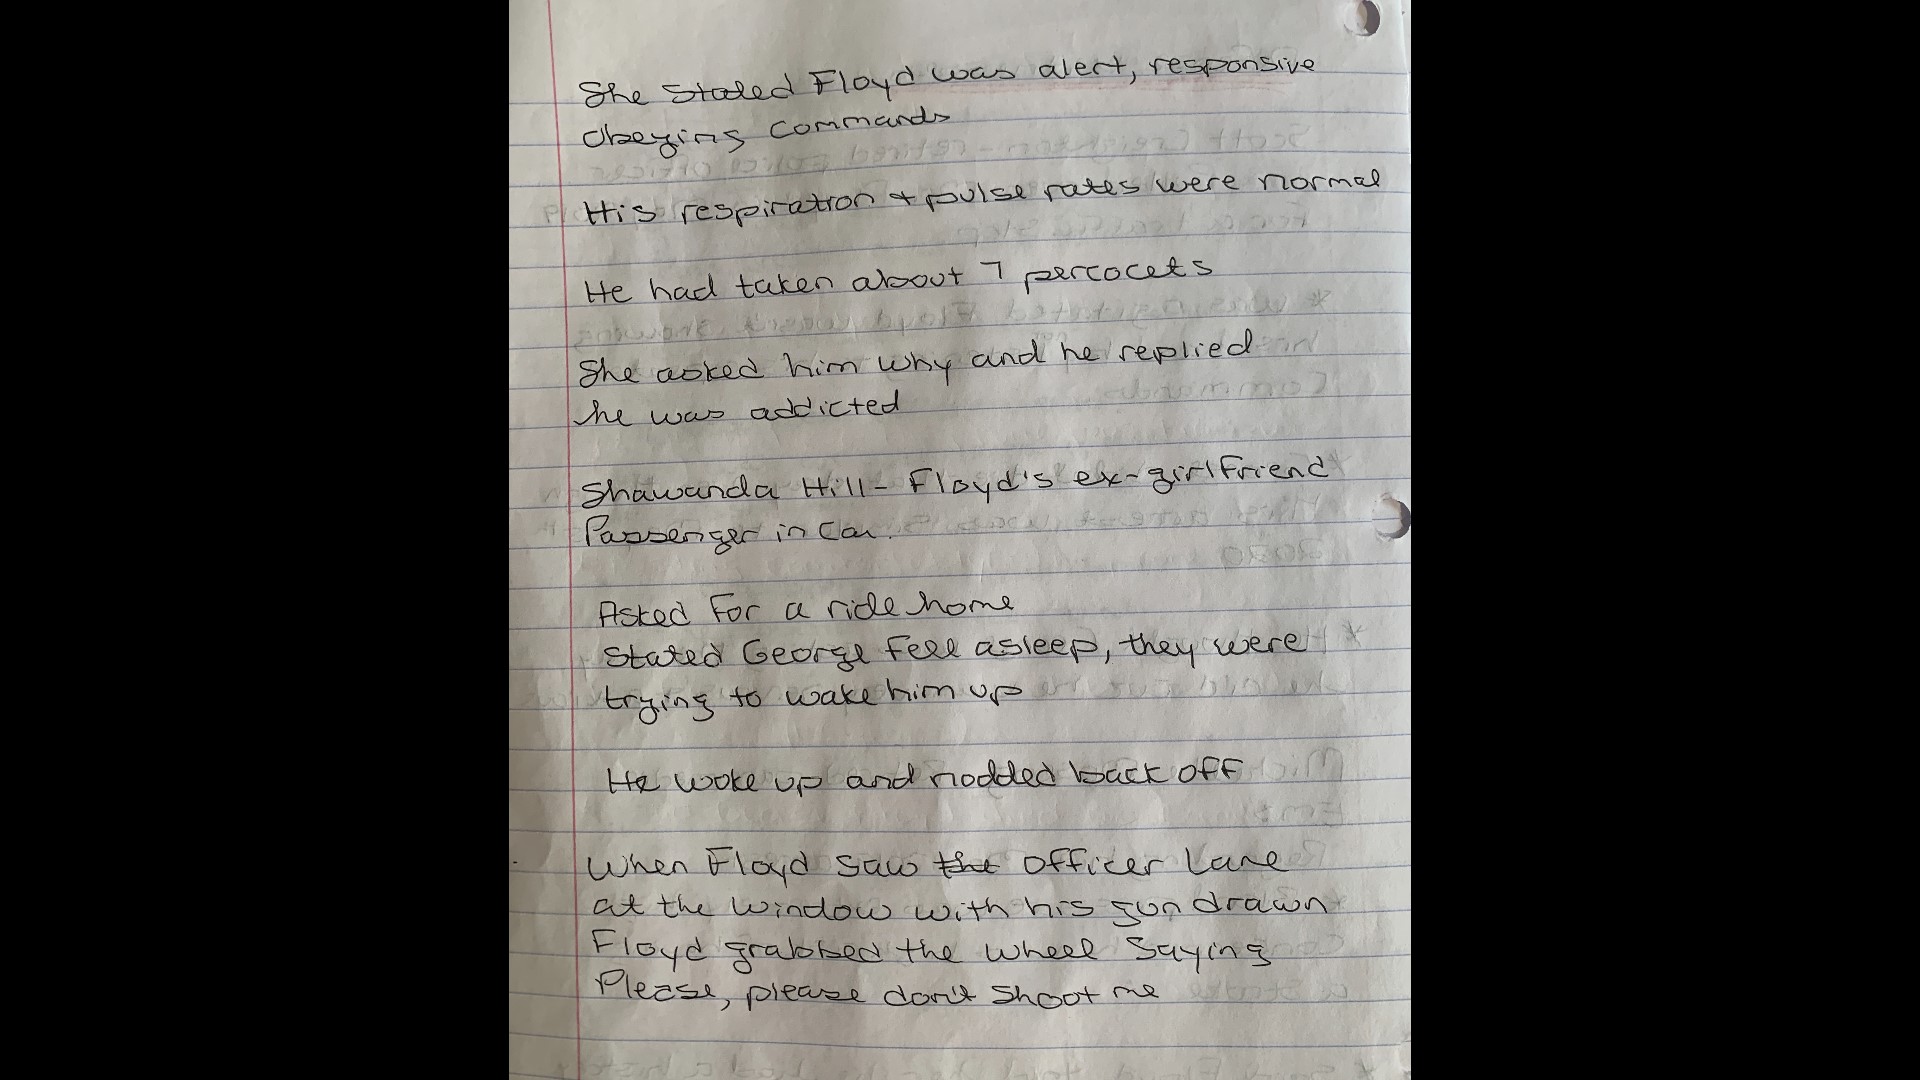 She stated Floyd was alert, responsive
Obeying commands
His respiration + pulse rates were normal
He had taken about 7 percocets
She asked him why and he replied
he was addicted
Shawanda Hill - Floyd's ex-girlfriend
Passenger in car.
Asked for a ride home
Stated George fell asleep, they were
trying to wake him up
He woke up and nodded back off
When Floyd saw the Officer Lane
at the window with his gun drawn
Floyd grabbed the wheel saying
Please, please don't shoot me